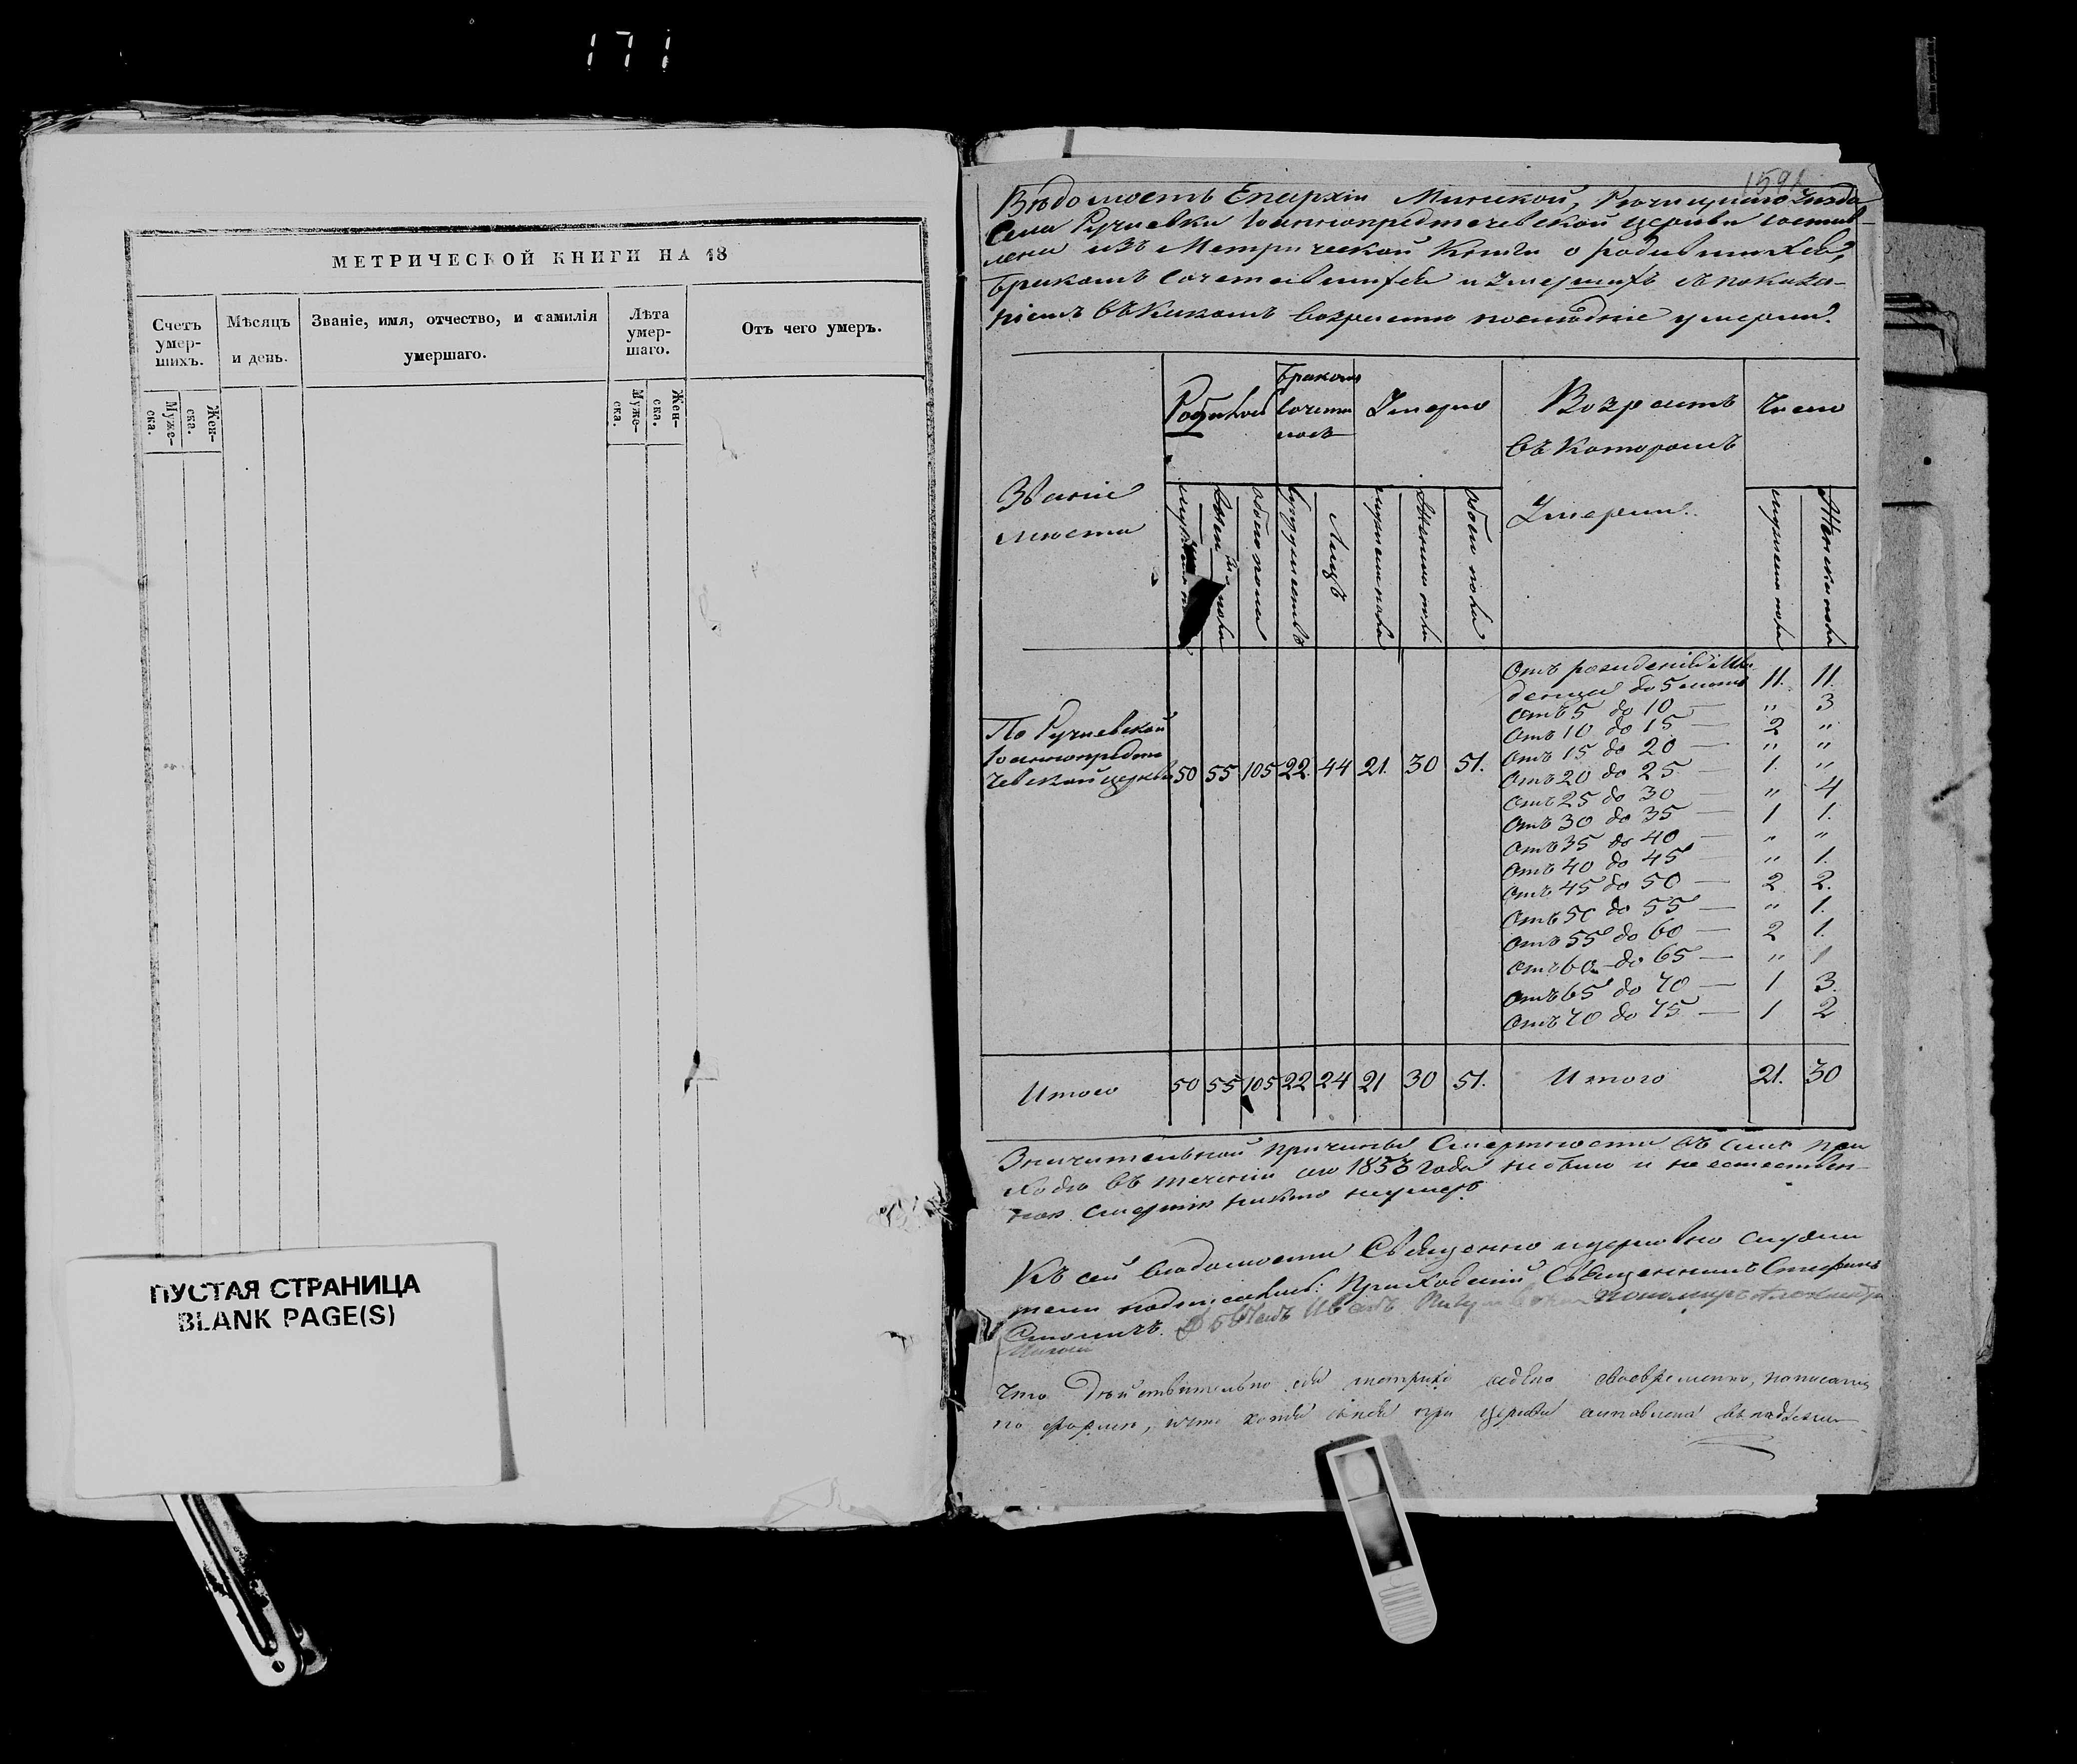 171
МЕТРИЧЕСКОЙ КНИГИ НА 18
Счетъ умер-шихъ.
Мѣсяцъ и день.
Званіе, имя, отчество, и фамилія умершаго.
Лѣта умер-шаго.
Отъ чего умеръ.
Муже-ска.
Жен-ска.
Муже-ска.
Жен-ска.
ПУСТАЯ СТРАНИЦА
BLANK PAGE(S)
159
Вѣдомость Епархіи Минской, Речицкаго Уезда
Села Ручаевки Іаннопредтечевской церкви состав-
лена изъ Метрической Книги о родившихся,
бракомъ сочетавшихся и умершихъ съ показа-
ніемъ въ какомъ возрасте последніе умерли.
Званіе места
Родилось
Бракомъ сочетались
Умерло
Возрастъ въ которомъ Умерли
Число
мужеска пола
женска пола
обоего пола
супружествъ
Лицъ
мужеска пола
Женска пола
обоего пола
мужеска пола
Женска пола
По Ручаевской
Іаннопредте
чевской церкви 50 55 105 22. 44 21. 30 51.
Отъ рожденія Мла-
денца до 5 летъ 11. 11.
Отъ 5 до 10 — " 3
Отъ 10 до 15 — 2 "
Отъ 15 до 20 — " "
Отъ 20 до 25 — 1. "
Отъ 25 до 30 — " 4
Отъ 30 до 35 — 1 1.
Отъ 35 до 40 — " "
Отъ 40 до 45 — " 1.
Отъ 45 до 50 — 2 2.
Отъ 50 до 55 — " 1.
Отъ 55 до 60 — 2 1.
Отъ 60 до 65 — " 1
Отъ 65 до 70 — 1 3.
Отъ 70 до 75 — 1 2
Итого 50 55 105 22 24 21 30 51. Итого 21. 30
Значительной причины Смертности въ семъ при
ходе въ теченіи сего 1853 года небыло и неестествен-
ною смертію никто неумеръ
Къ сей Ведомости Священно и церковно служи
тели подписались: Приходскій Священникъ Стефанъ
Смоличъ. Дьячекъ Иванъ пономарь Александръ
Что действительно сія метрика ведена своевременно, написана
по форме, и что копія при церкви оставлена